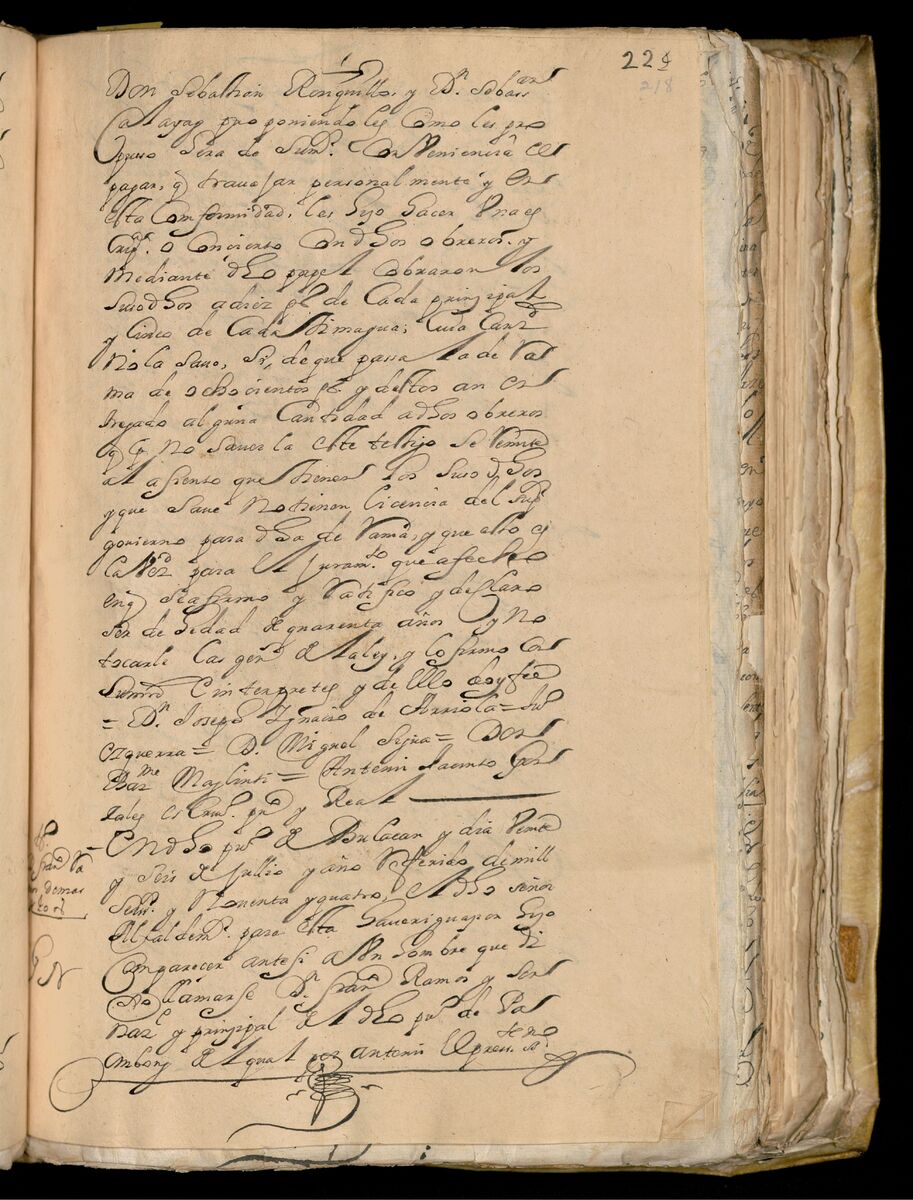 224
218
Don Sebastian Ronquillo, y Dn. Sebasn.
Catayag proponiendoles Como les pro
puso sera de Suma. Conveniencia el
pagar, q travajar personalmente y en
esta Comformidad, les hizo hacer Una es
cripa. o Concierto Con dhos obreros. y
Mediante dho papel Cobraron los
susodhos a diez ps. de Cada prinzipal
y Cinco de Cada timagua; Cuia Cantd.
No la save, si, de que passa la de
ma de ochocientos ps. y destos an en
tregado alguna Cantidad a dhos obreros
q No saver la este testigo se
al asiento que tienen los suso dhos
y que save No tienen licencia del Supr.
govierno para dha y que esto es
la Verd. para el Juramto. que a fecho
en q se afirmo y Ratifico y declaro
ser de hedad de quarenta años y No
tocarle las gens. de la ley, y lo firmo Con
Su md e interpretes y de ello doy fee
= Dn. Joseph Ygnacio de Arriola = Jul.
Ezguerra = D. Miguel = Don
Barme. = Antemi Jacinto Gon
zales escrivo. puco. y Real
En dho puo. de Bulacan y dia Veinte
y seis de Jullio y año Referido de mill
Seisos. y Noventa y quatro, el dho señor
Alcalde mr. para esta haveriguazion hizo
Comparecer ante si a Un hombre que di
xo llamarse Dn. Franco. Ramos y ser
y prinzipal del dho puo. de
del qual por antemi el preste. no
to.
Franco. Ra
mos